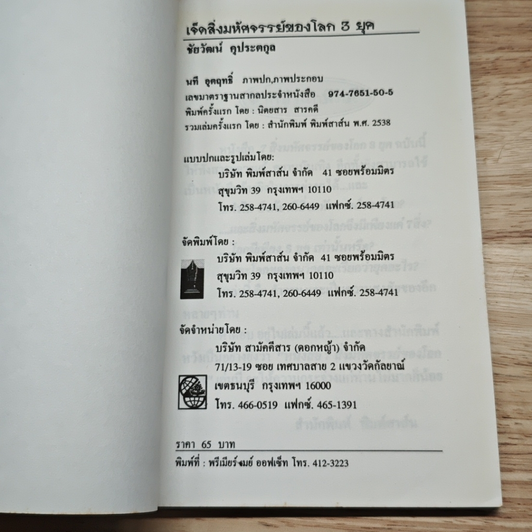 เจ็ดสิ่งมหัศจรรย์ของโลก 3 ยุค
ชัยวัฒน์ คุประตกุล
นที อุตฤทธิ์ ภาพปก,ภาพประกอบ
เลขมาตราฐานสากลประจำหนังสือ 974-7651-50-5
พิมพ์ครั้งแรก โดย : นิตยสาร สารคดี
รวมเล่มครั้งแรก โดย : สำนักพิมพ์ พิมพ์สาส์น พ.ศ. 2538
แบบปกและรูปเล่มโดย:
บริษัท พิมพ์สาส์น จำกัด 41 ซอยพร้อมมิตร
สุขุมวิท 39 กรุงเทพฯ 10110
โทร. 258-4741, 260-6449 แฟกซ์. 258-4741
จัดพิมพ์โดย :
บริษัท พิมพ์สาส์น จำกัด 41 ซอยพร้อมมิตร
สุขุมวิท 39 กรุงเทพฯ 10110
โทร. 258-4741, 260-6449 แฟกซ์. 258-4741
จัดจำหน่ายโดย :
บริษัท สามัคคีสาร (ดอกหญ้า) จำกัด
71/13-19 ซอย เทศบาลสาย 2 แขวงวัดกัลยาณ์
เขตธนบุรี กรุงเทพฯ 16000
โทร. 466-0519 แฟกซ์. 465-1391
ราคา 65 บาท
พิมพ์ที่ : พรีเมียร์ ออฟเซ็ท โทร. 412-3223